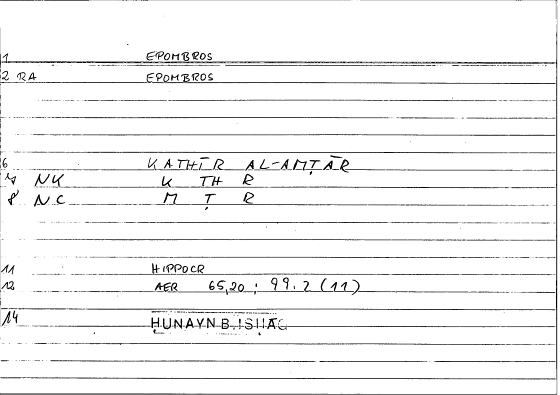 1 EPOMBROS
2 RA EPOMBROS
6 KATHĪR AL-AMṬĀR
7 NK K TH R
8 NC M Ṭ R
11 HIPPOCR
12 AER 65,20 ; 99.2 (11)
14 ḤUNAYN B. ISḤĀQ